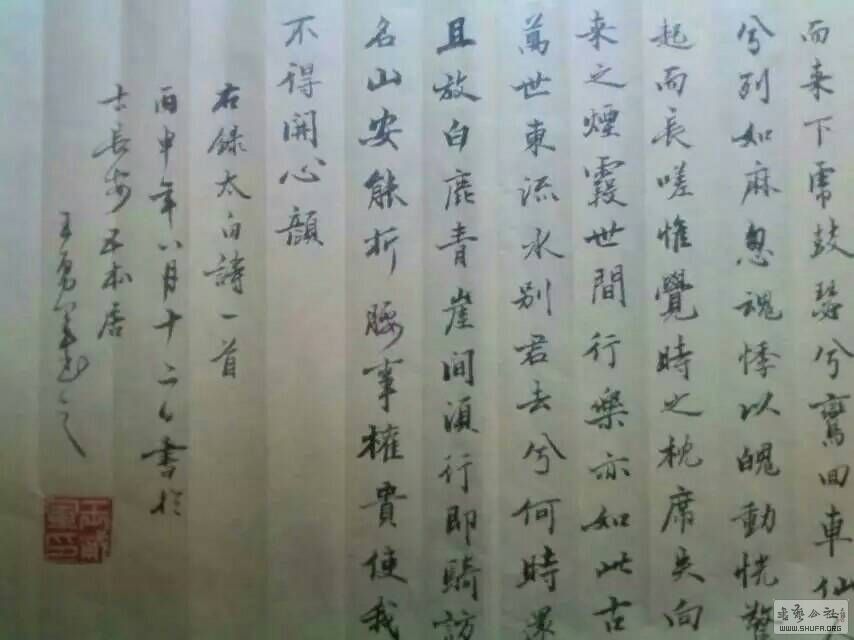 而来下虎鼓瑟兮鸞回車仙
兮列如麻忽魂悸以魄動恍驚
起而長嗟惟覺時之枕席失向
来之煙霞世間行樂亦如此古
萬世東流水别君去兮何時還
且放白鹿青崖间須行即騎訪
名山安能折腰事權貴使我
不得開心顔
右錄太白詩一首
丙申年八月十二日書於
士長安五松居
王
WWW.SHUFA.ORG